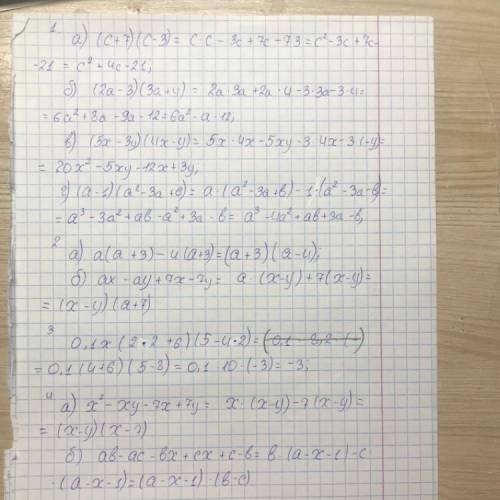 1.
а) (c+7)(c-3) = c·c - 3c + 7c - 7·3 = c² - 3c + 7c -
-21 = c² + 4c - 21;
б) (2a-3)(3a+4) = 2a·3a + 2a·4 - 3·3a - 3·4 =
= 6a² + 8a - 9a - 12 = 6a² - a - 12;
в) (5x-3y)(4x-y) = 5x·4x - 5xy - 3·4x - 3(-y) =
= 20x² - 5xy - 12x + 3y;
г) (a-1)(a²-3a+в) = a·(a²-3a+в) - 1·(a²-3a-в) =
= a³ - 3a² + aв - a² + 3a - в = a³ - 4a² + aв + 3a - в;
2
а) a(a+3) - 4(a+3) = (a+3)(a-4);
б) ax - ay + 7x - 7y = a(x-y) + 7(x-y) =
= (x-y)(a+7)
3
0,1x(2·2+6)(5-4·2) =
= 0,1(4+6)(5-8) = 0,1·10·(-3) = -3;
4
а) x² - xy - 7x + 7y = x·(x-y) - 7(x-y) =
= (x-y)(x-7)
б) aв - ac - вx + cx + c - в = в·(a-x-1) - c
·(a-x-1) = (a-x-1)·(в-c).